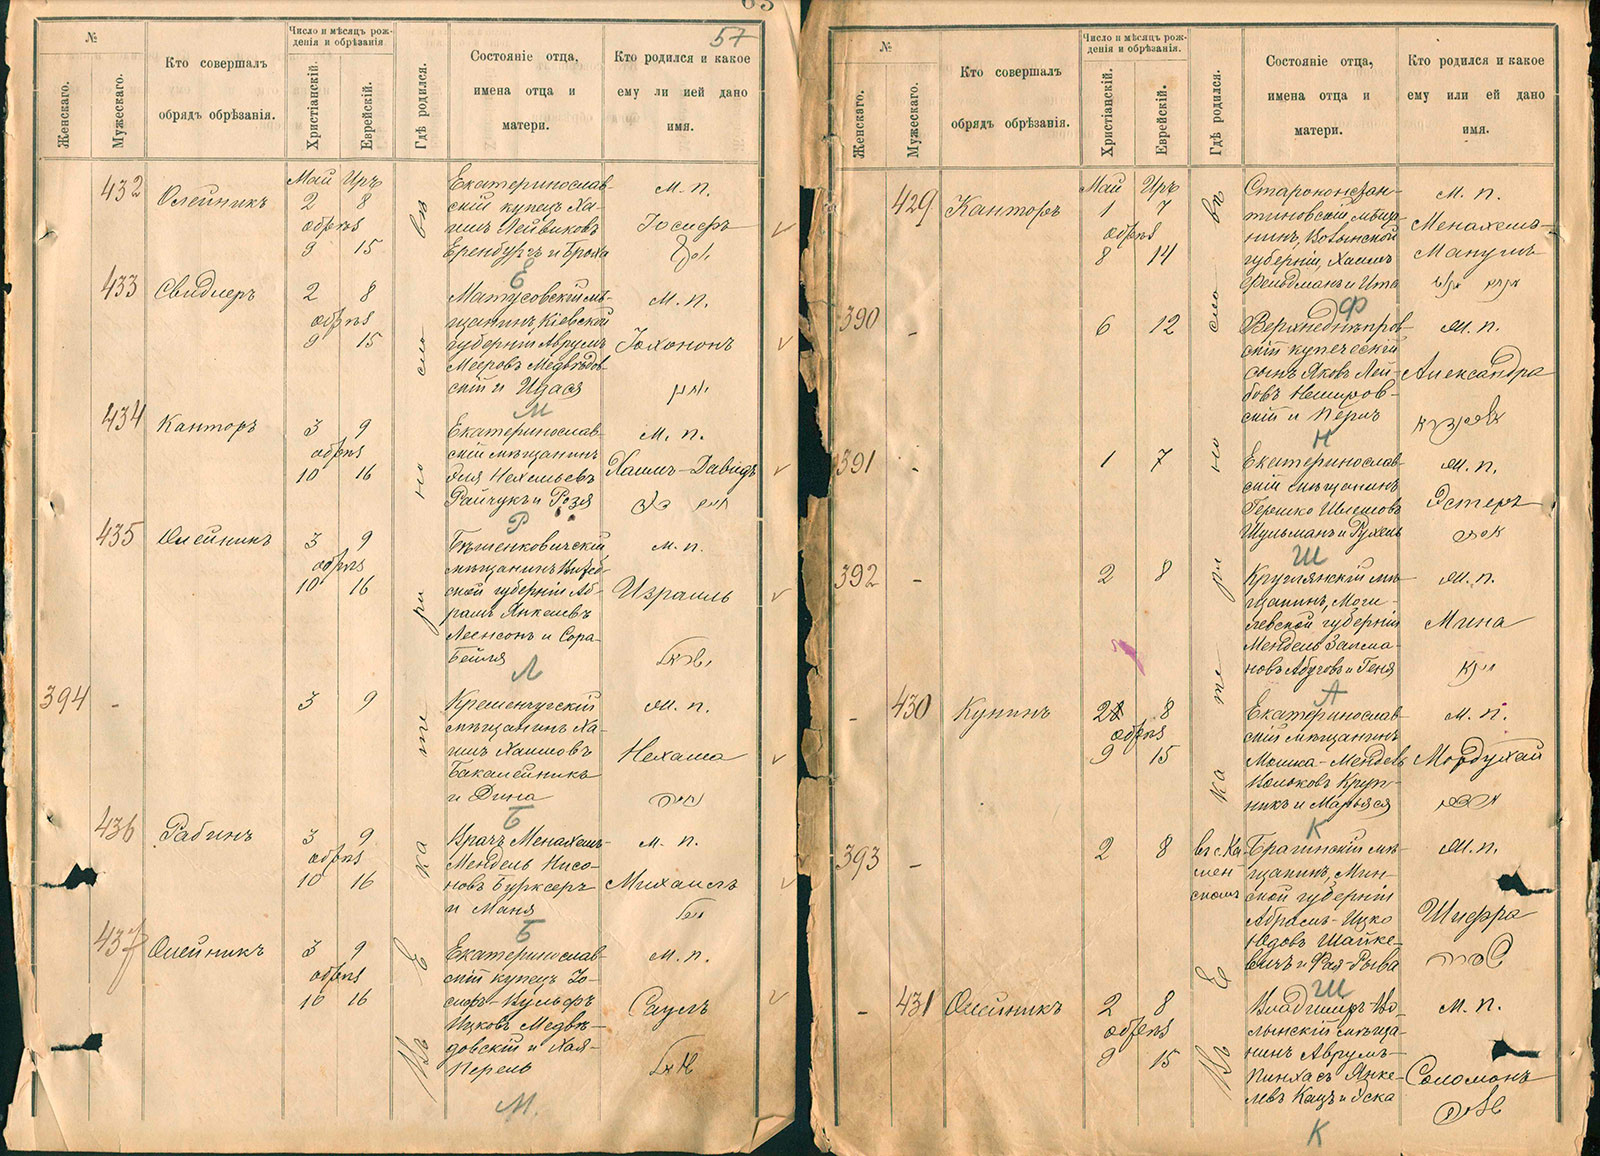 57
№
Женскаго.
Мужескаго.
Кто совершалъ
обрядъ обрѣзанія.
Число и мѣсяцъ рож-
денія и обрѣзанія.
Христіанскій.
Еврейскій.
Гдѣ родился.
Состояніе отца,
имена отца и
матери.
Кто родился и какое
ему ли ией дано
имя.
Въ Екатеринославъ
432
Олейникъ
Май Иръ
2 8
обрѣз
9 15
Екатеринослав
скій купецъ Ха-
имъ Лейвиковъ
Еренбургъ и Броха
м. п.
Іосифъ
Е
433
Свидлеръ
2 8
обрѣз
9 15
Матусовскій мѣ-
щанинъ, Кіевской
губерніи Аврумъ
Мееровъ Медвѣдов
скій и Идася
м. п.
Іохононъ
М
434
Канторъ
3 9
обрѣз
10 16
Екатеринослав-
скій мѣщанинъ
Райчукъ и Розя
м. п.
Хаимъ-Давидъ
Р
435
Олейникъ
3 9
обрѣз
10 16
Бѣшенковичскій
мѣщанинъ Витеб-
ской губерніи Аб-
рамъ Янкелевъ
Леенсонъ и Сора-
Бейля
м. п.
Израиль
Л
394
-
3 9
Кременчугскій
мѣщанинъ Ха-
имъ Хаимовъ
Бакалейникъ
и Дина
м. п.
Нехама
Б
436
Рабинъ
3 9
обрѣз
10 16
Врачъ Менахемъ-
Мендель Нисо-
новъ Бурксеръ
и Маня
м. п.
Михаилъ
Б
437
Олейникъ
3 9
обрѣз
10 16
Екатеринослав-
скій купецъ Іо-
сифъ-Вульфъ
Ицковъ Медвѣ-
довскій и Хая-
Перель
м. п.
Саулъ
М.
№
Женскаго.
Мужескаго.
Кто совершалъ
обрядъ обрѣзанія.
Число и мѣсяцъ рож-
денія и обрѣзанія.
Христіанскій.
Еврейскій.
Гдѣ родился.
Состояніе отца,
имена отца и
матери.
Кто родился и какое
ему или ей дано
имя.
Въ Екатеринославъ
429
Канторъ
Май Иръ
1 7
обрѣз
8 14
Староконстан-
тиновскій, мѣща-
нинъ, Волынской
губерніи, Хаимъ
Фельдманъ и Ита
м. п.
Менахемъ-
Манусъ
Ф
390
-
6 12
Верхнеднѣпров-
скій купеческій
сынъ Яковъ Лей-
бовъ Немиров-
скій и Перлъ
м. п.
Александра
Н
391
-
1 7
Екатеринослав-
скій мѣщанинъ
Гершко Шлемовъ
Шульманъ и Рухель
м. п.
Эстеръ
Ш
392
-
2 8
Круглянскій мѣ-
щанинъ, Моги-
левской губерніи
Мендель Залма-
новъ Абуговъ и Геня
м. п.
Мина
А
-
430
Купинъ
2 8
обрѣз
9 15
Екатеринослав-
скій мѣщанинъ
Мошка-Мендель
Вольковъ Круп-
никъ и Марьяся
м. п.
Мордухай
К
393
-
2 8
въ с. Ка-
мен
скомъ
Брагинскій мѣ-
щанинъ, Мин-
ской губерніи
Абрамъ-Ицко
Юдовъ Шайке-
вичъ и Фая-Рыва
м. п.
Шифра
Ш
-
431
Олейникъ
2 8
обрѣз
9 15
Владиміръ-Во-
лынскій мѣща-
нинъ Аврумъ-
Пинхасъ Янке-
левъ Кацъ и Эска
м. п.
Соломонъ
К